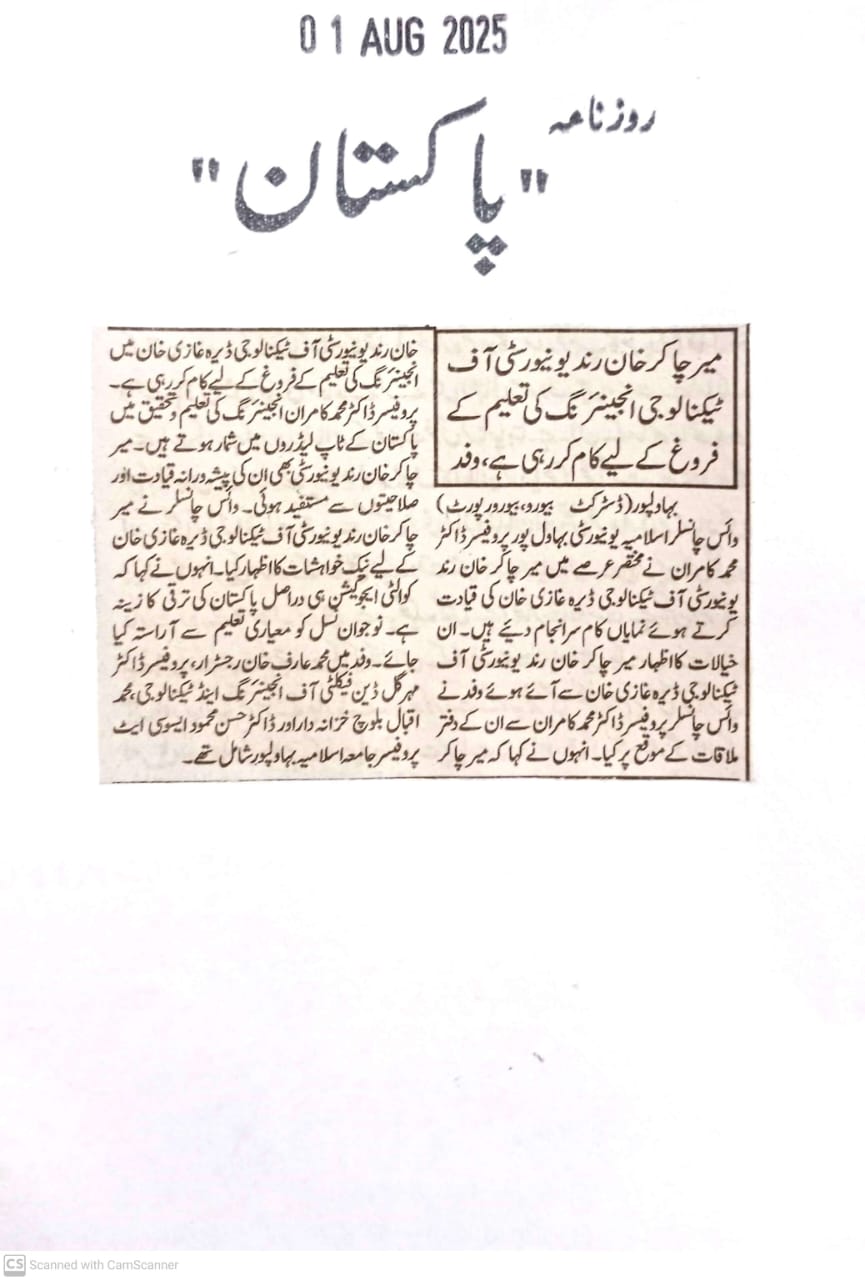 01 AUG 2025
روزنامہ
"پاکستان"
میر چاکر خان رند یونیورسٹی آف
ٹیکنالوجی انجینئرنگ کی تعلیم کے
فروغ کے لیے کام کر رہی ہے، وفد
بہاولپور (ڈسٹرکٹ بیورو، بیورورپورٹ)
وائس چانسلر اسلامیہ یونیورسٹی بہاول پور پروفیسر ڈاکٹر
محمد کامران نے مختصر عرصے میں میر چاکر خان رند
یونیورسٹی آف ٹیکنالوجی ڈیرہ غازی خان کی قیادت
کرتے ہوئے نمایاں کام سرانجام دیئے ہیں۔ ان
خیالات کا اظہار میر چاکر خان رند یونیورسٹی آف
ٹیکنالوجی ڈیرہ غازی خان سے آئے ہوئے وفد نے
وائس چانسلر پروفیسر ڈاکٹر محمد کامران سے ان کے دفتر
ملاقات کے موقع پر کیا۔ انہوں نے کہا کہ میر چاکر
خان رند یونیورسٹی آف ٹیکنالوجی ڈیرہ غازی خان میں
انجینئرنگ کی تعلیم کے فروغ کے لیے کام کر رہی ہے۔
پروفیسر ڈاکٹر محمد کامران انجینئرنگ کی تعلیم و تحقیق میں
پاکستان کے ٹاپ لیڈروں میں شمار ہوتے ہیں۔ میر
چاکر خان رند یونیورسٹی بھی ان کی پیشہ ورانہ قیادت اور
صلاحیتوں سے مستفید ہوئی۔ وائس چانسلر نے میر
چاکر خان رند یونیورسٹی آف ٹیکنالوجی ڈیرہ غازی خان
کے لیے نیک خواہشات کا اظہار کیا۔ انہوں نے کہا کہ
کوالٹی ایجوکیشن ہی دراصل پاکستان کی ترقی کا زینہ
ہے۔ نوجوان نسل کو معیاری تعلیم سے آراستہ کیا
جائے۔ وفد میں محمد عارف خان رجسٹرار، پروفیسر ڈاکٹر
مہر گل ڈین فیکلٹی آف انجینئرنگ اینڈ ٹیکنالوجی، محمد
اقبال بلوچ خزانہ دار اور ڈاکٹر حسن محمود ایسوسی ایٹ
پروفیسر جامعہ اسلامیہ بہاولپور شامل تھے۔
CS Scanned with CamScanner